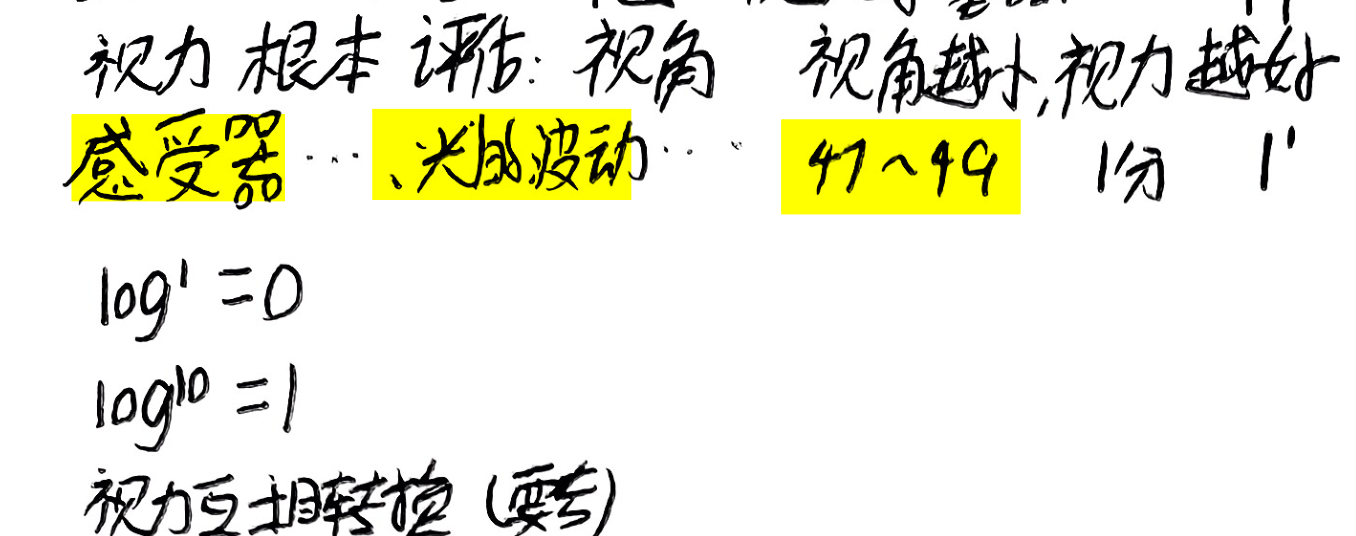 视力 根本 评估: 视角 视角越小,视力越好
感受器 ····、光的波动··· 47~49 1分 1'
log¹ =0
log¹⁰ =1
视力互相转换 (要考)